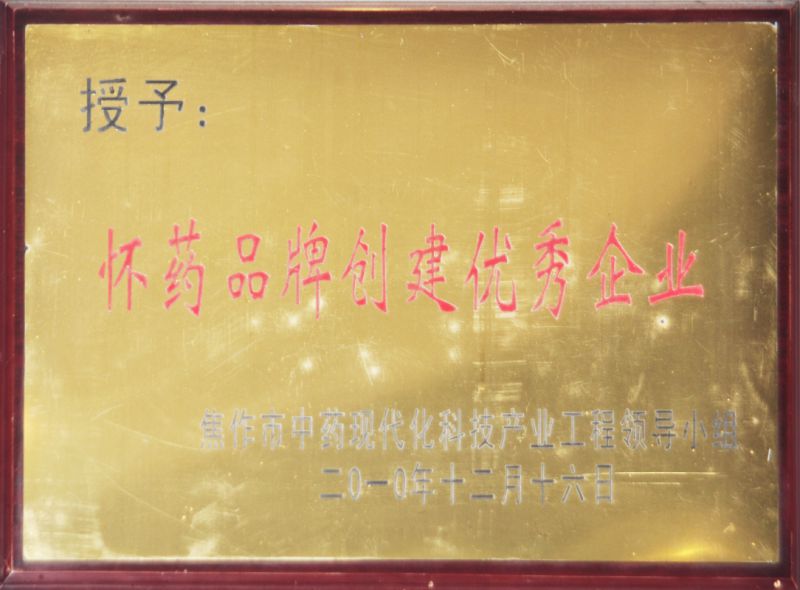 授予：
怀药品牌创建优秀企业
焦作市中药现代化科技产业工程领导小组
二〇一〇年十二月十六日